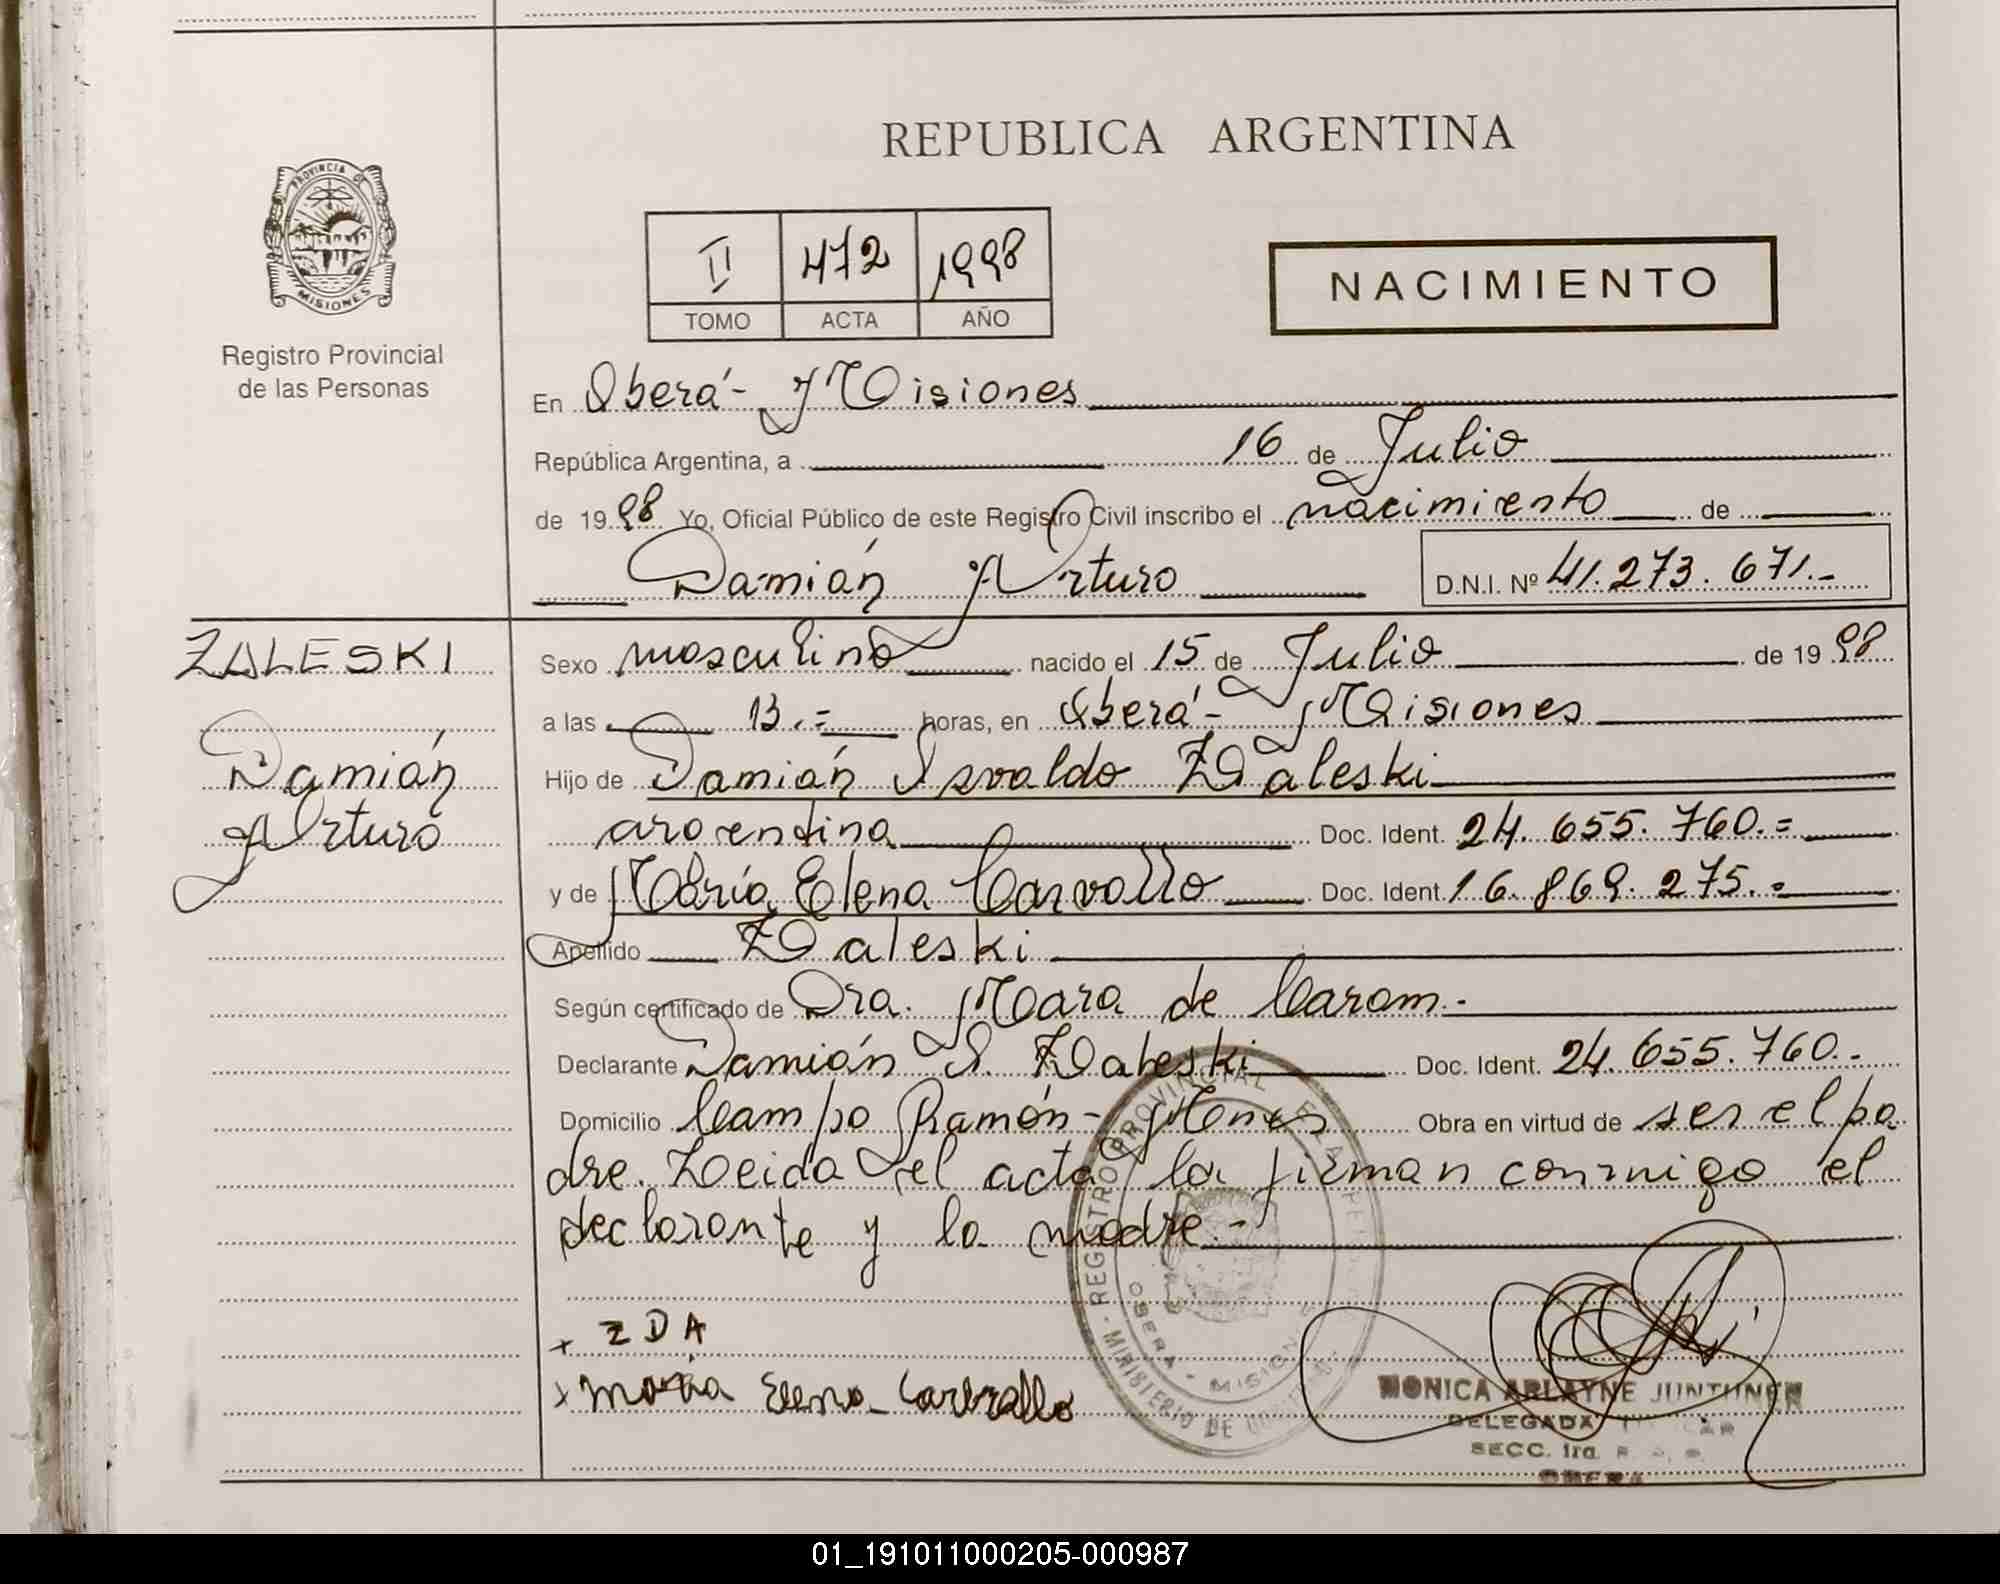 REPUBLICA ARGENTINA
PROVINCIA DE
MISIONES
Registro Provincial
de las Personas
II 472 1998
TOMO ACTA AÑO
NACIMIENTO
En Oberá - Misiones
República Argentina, a 16 de Julio
de 1998 Yo, Oficial Público de este Registro Civil inscribo el nacimiento de
Damián Arturo D.N.I. Nº 41.273.671.-
ZALESKI
Damián
Arturo
Sexo masculino nacido el 15 de Julio de 1998
a las 13.= horas, en Oberá - Misiones
Hijo de Damián Osvaldo Zaleski
argentina Doc. Ident. 24.655.760.=
y de María Elena Carvallo Doc. Ident. 16.869.275.=
Apellido Zaleski
Según certificado de Dra. Mara de Carom.-
Declarante Damián O. Zaleski Doc. Ident. 24.655.760.-
Domicilio Campo Ramón - Mnes Obra en virtud de ser el pa
dre. Leida el acta la firman conmigo el
declarante y la madre.-
x ZDA
x Maria Elena Carballo
REGISTRO PROVINCIAL DE LAS PERSONAS
OBERA - MISIONES
MINISTERIO DE
MONICA ARLAYNE JUNTUNEN
DELEGADA
SECC. 1ra.
OBERA
01_191011000205-000987